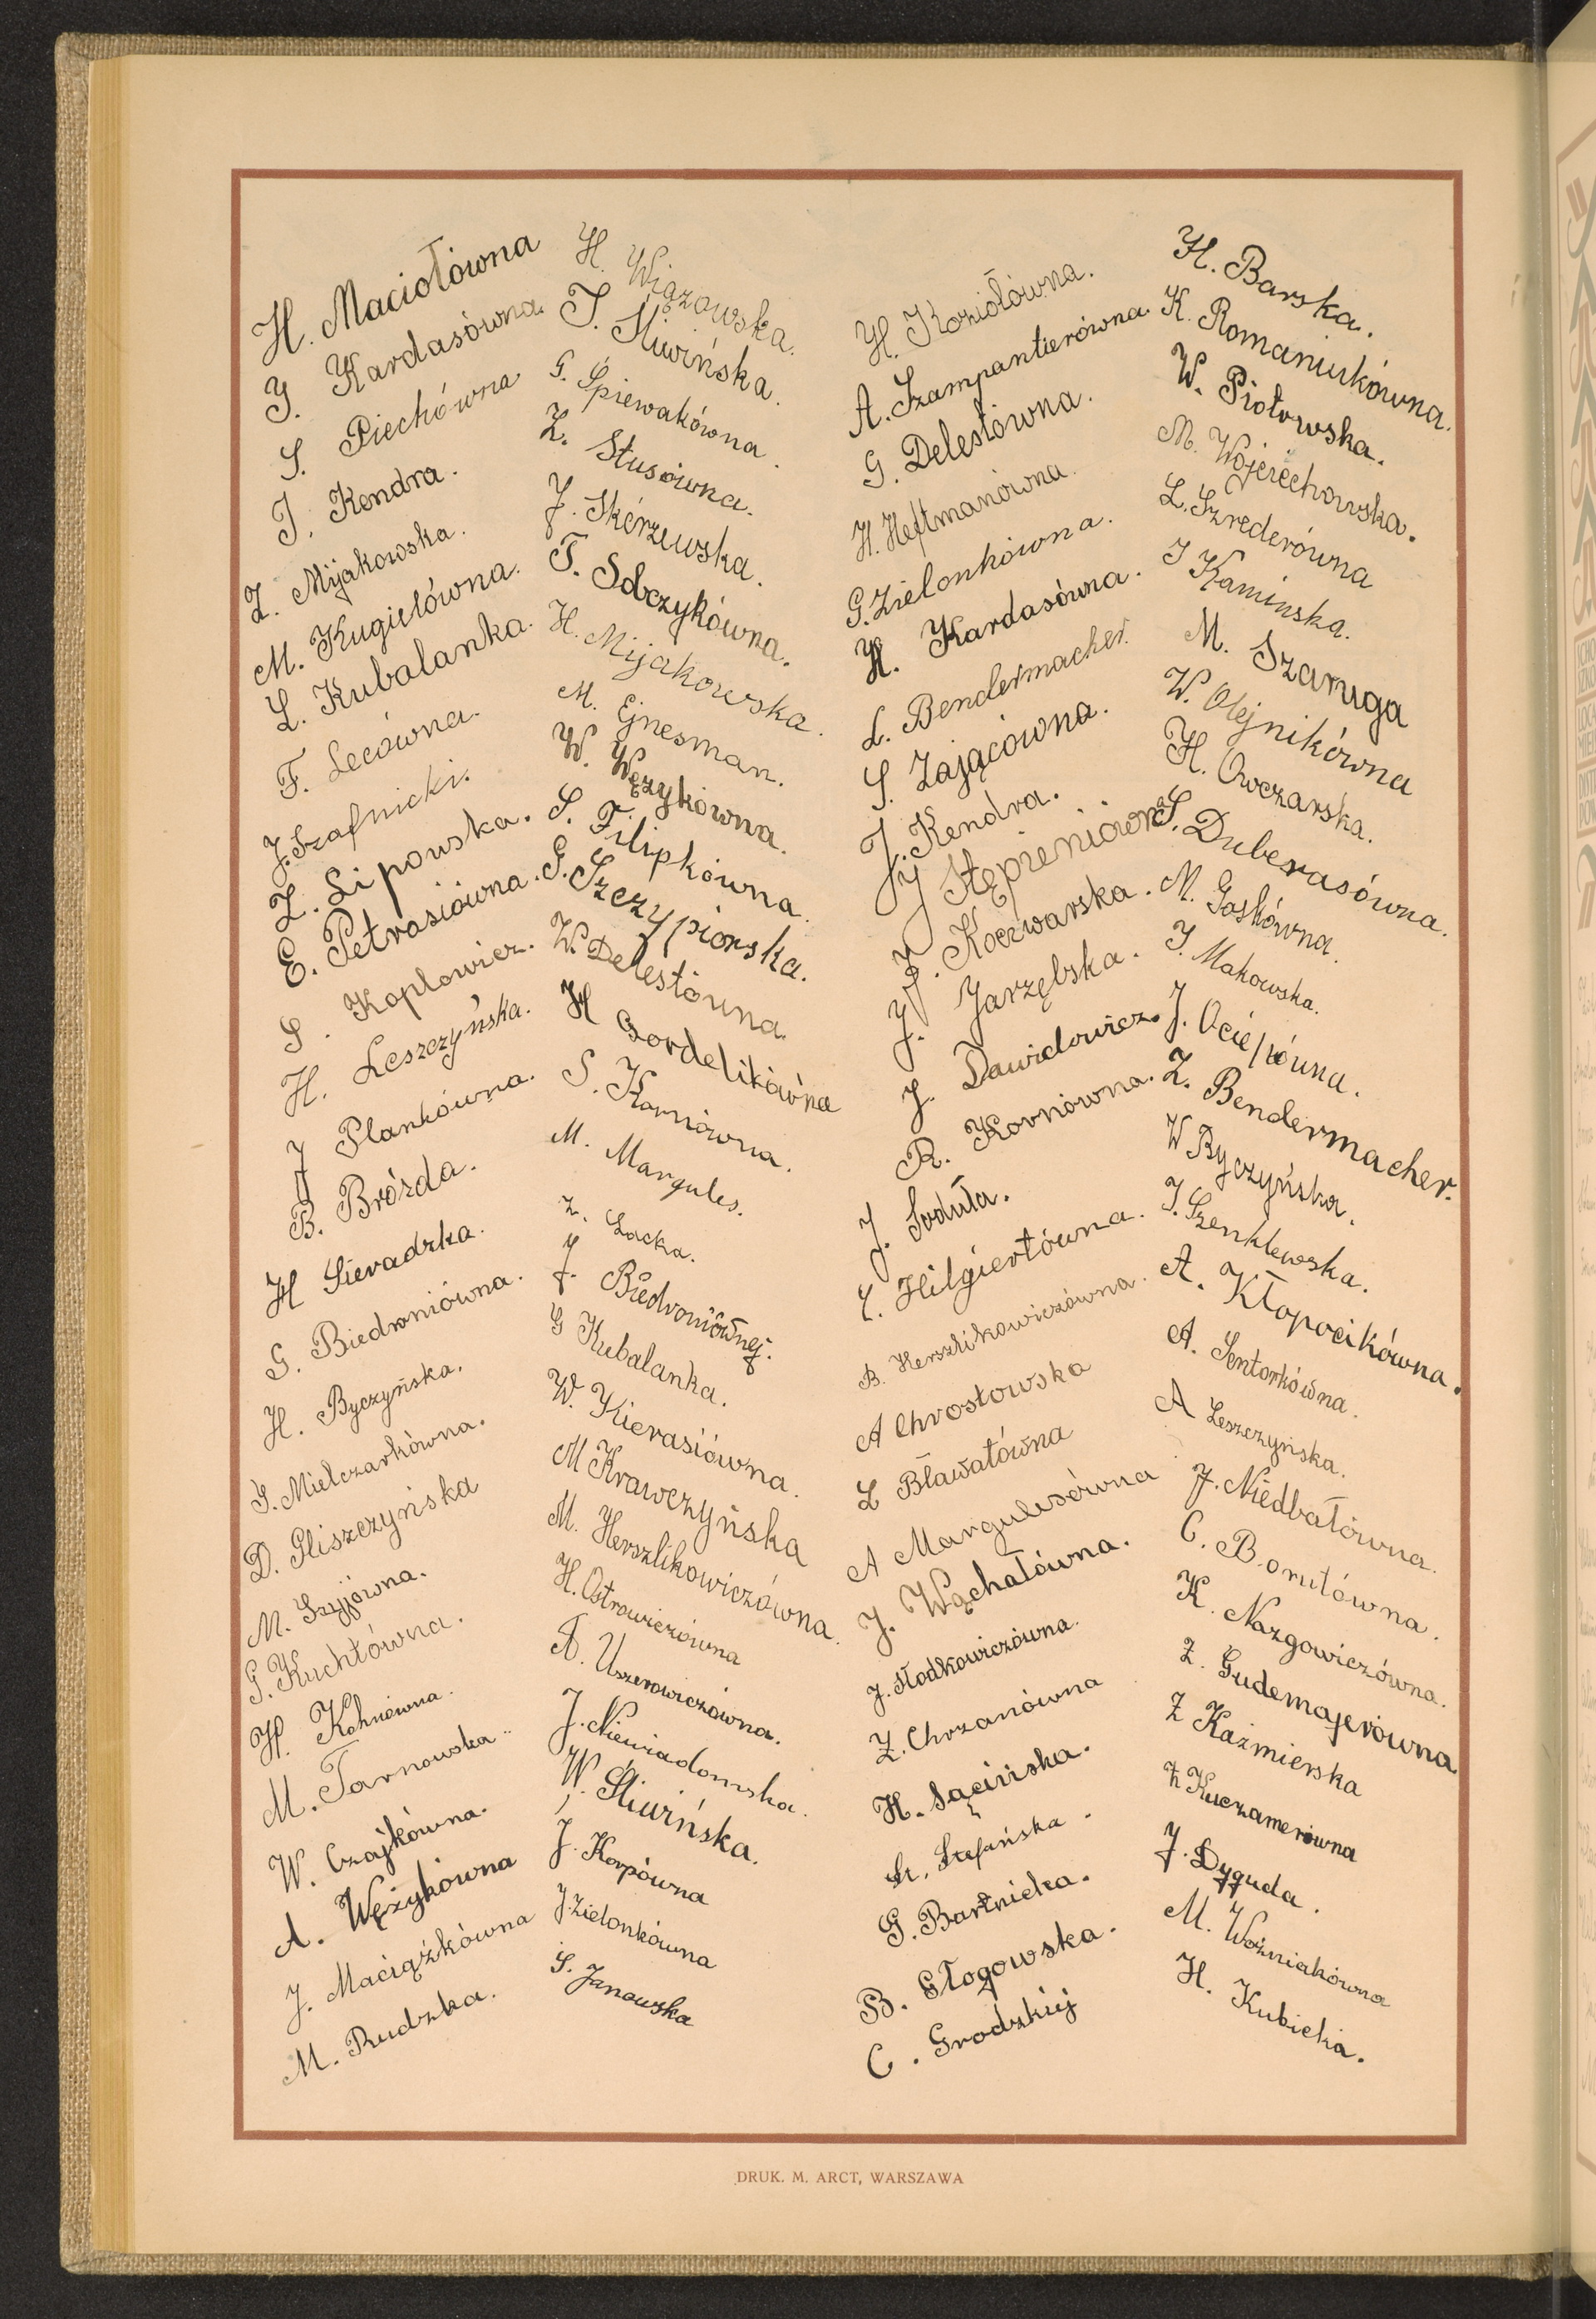 H. Maciołówna
J. Kardasówna.
S. Piechówna
J. Kendra.
Z. Mijakowska.
M. Kugielówna.
L. Kubalanka.
F. Lecówna.
J. Szafnicki.
Z. Lipowska.
E. Petrasiówna.
S. Koplowicz.
H. Leszczyńska.
J Plankówna.
B. Brózda.
H Sieradzka.
G. Biedroniówna.
H. Byczyńska.
S. Mielczarkówna.
D. Pliszczyńska
M. Szyjówna.
G. Kuchtówna.
H. Kohnówna.
M. Tarnowska
W. Czajkówna.
A. Wężykówna
J. Maciążkówna
M. Rudzka.
H. Wiązowska.
T. Śliwińska.
G. Śpiewakówna.
Z. Stusówna.
J. Skórzewska.
T. Sobczykówna.
H. Mijakowska.
M. Ejnesman.
W. Wężykówna.
S. Filipkówna.
G. Szczypiorska.
W. Delestówna
H Gordelikówna
S. Kornówna.
M. Margules.
Z. Łacka.
J. Biedroniównej.
G Kubalanka.
W. Kierasiówna.
M Krawczyńska
M. Herszlikowiczówna.
H. Ostrowiczówna
A. Uszerowiczówna.
J. Niewiadomska.
W. Śliwińska.
J. Karpówna
J. Zielonkówna
S. Janowska
H. Koziołówna.
A. Szampanierówna.
G. Delestówna.
H. Heftmanówna.
G. Zielonkówna.
H. Kardasówna.
L. Bendermacher.
S. Zającówna.
J. Kendra.
J Stępieniówna
J. Koczwarska.
J. Jarzębska.
J. Dawidowicz.
R. Kornówna.
J. Soduła.
Z. Hilgiertówna.
B. Herszlikowiczówna.
A Chrostowska
L Bławatówna
A Margulesówna
J. Wąchałówna.
J. Słodkowiczówna.
Z. Chrzanówna
H. Sącińska.
St. Stefańska.
G. Bartnicka.
B. Głogowska.
C. Grodzkiej
H. Barska.
K. Romaniukówna.
W. Piotrowska.
M. Wojciechowska.
L. Szrederówna
J Kaminska.
M. Szaruga
W. Olejnikówna
H. Owczarska.
S. Duberasówna.
M. Gaskówna.
J. Makowska.
J. Ociepówna.
Z. Bendermacher.
W Byczyńska.
J. Szenklewska.
A. Kłopocikówna.
A. Sentorkówna.
A Leszczyńska.
J. Niedbałówna.
C. Borutówna.
K. Nazgowiczówna.
Z. Gudemajerówna
Z Kaźmierska
Z Kuczamerówna
J. Dyguda.
M. Woźniakówna
H. Kubicka.
DRUK. M. ARCT, WARSZAWA